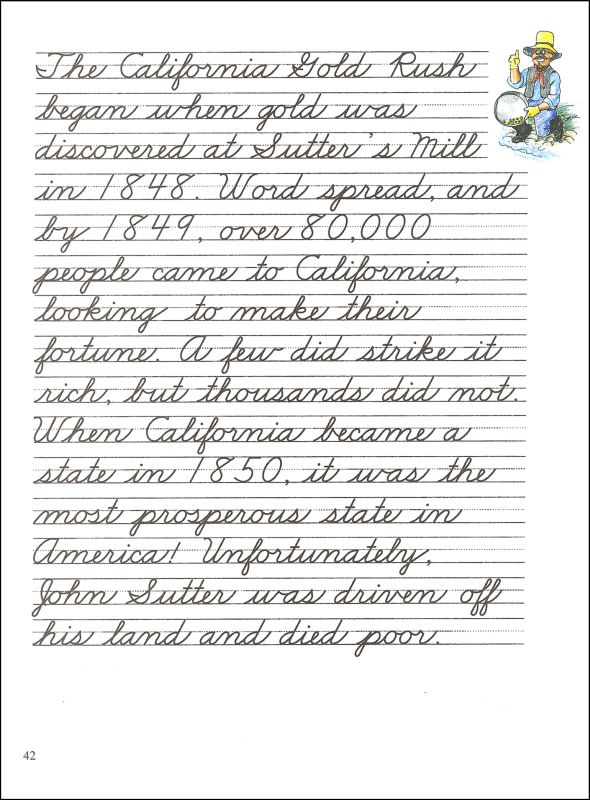 The California Gold Rush
began when gold was
discovered at Sutter's Mill
in 1848. Word spread, and
by 1849, over 80,000
people came to California,
looking to make their
fortune. A few did strike it
rich, but thousands did not.
When California became a
state in 1850, it was the
most prosperous state in
America! Unfortunately,
John Sutter was driven off
his land and died poor.
42